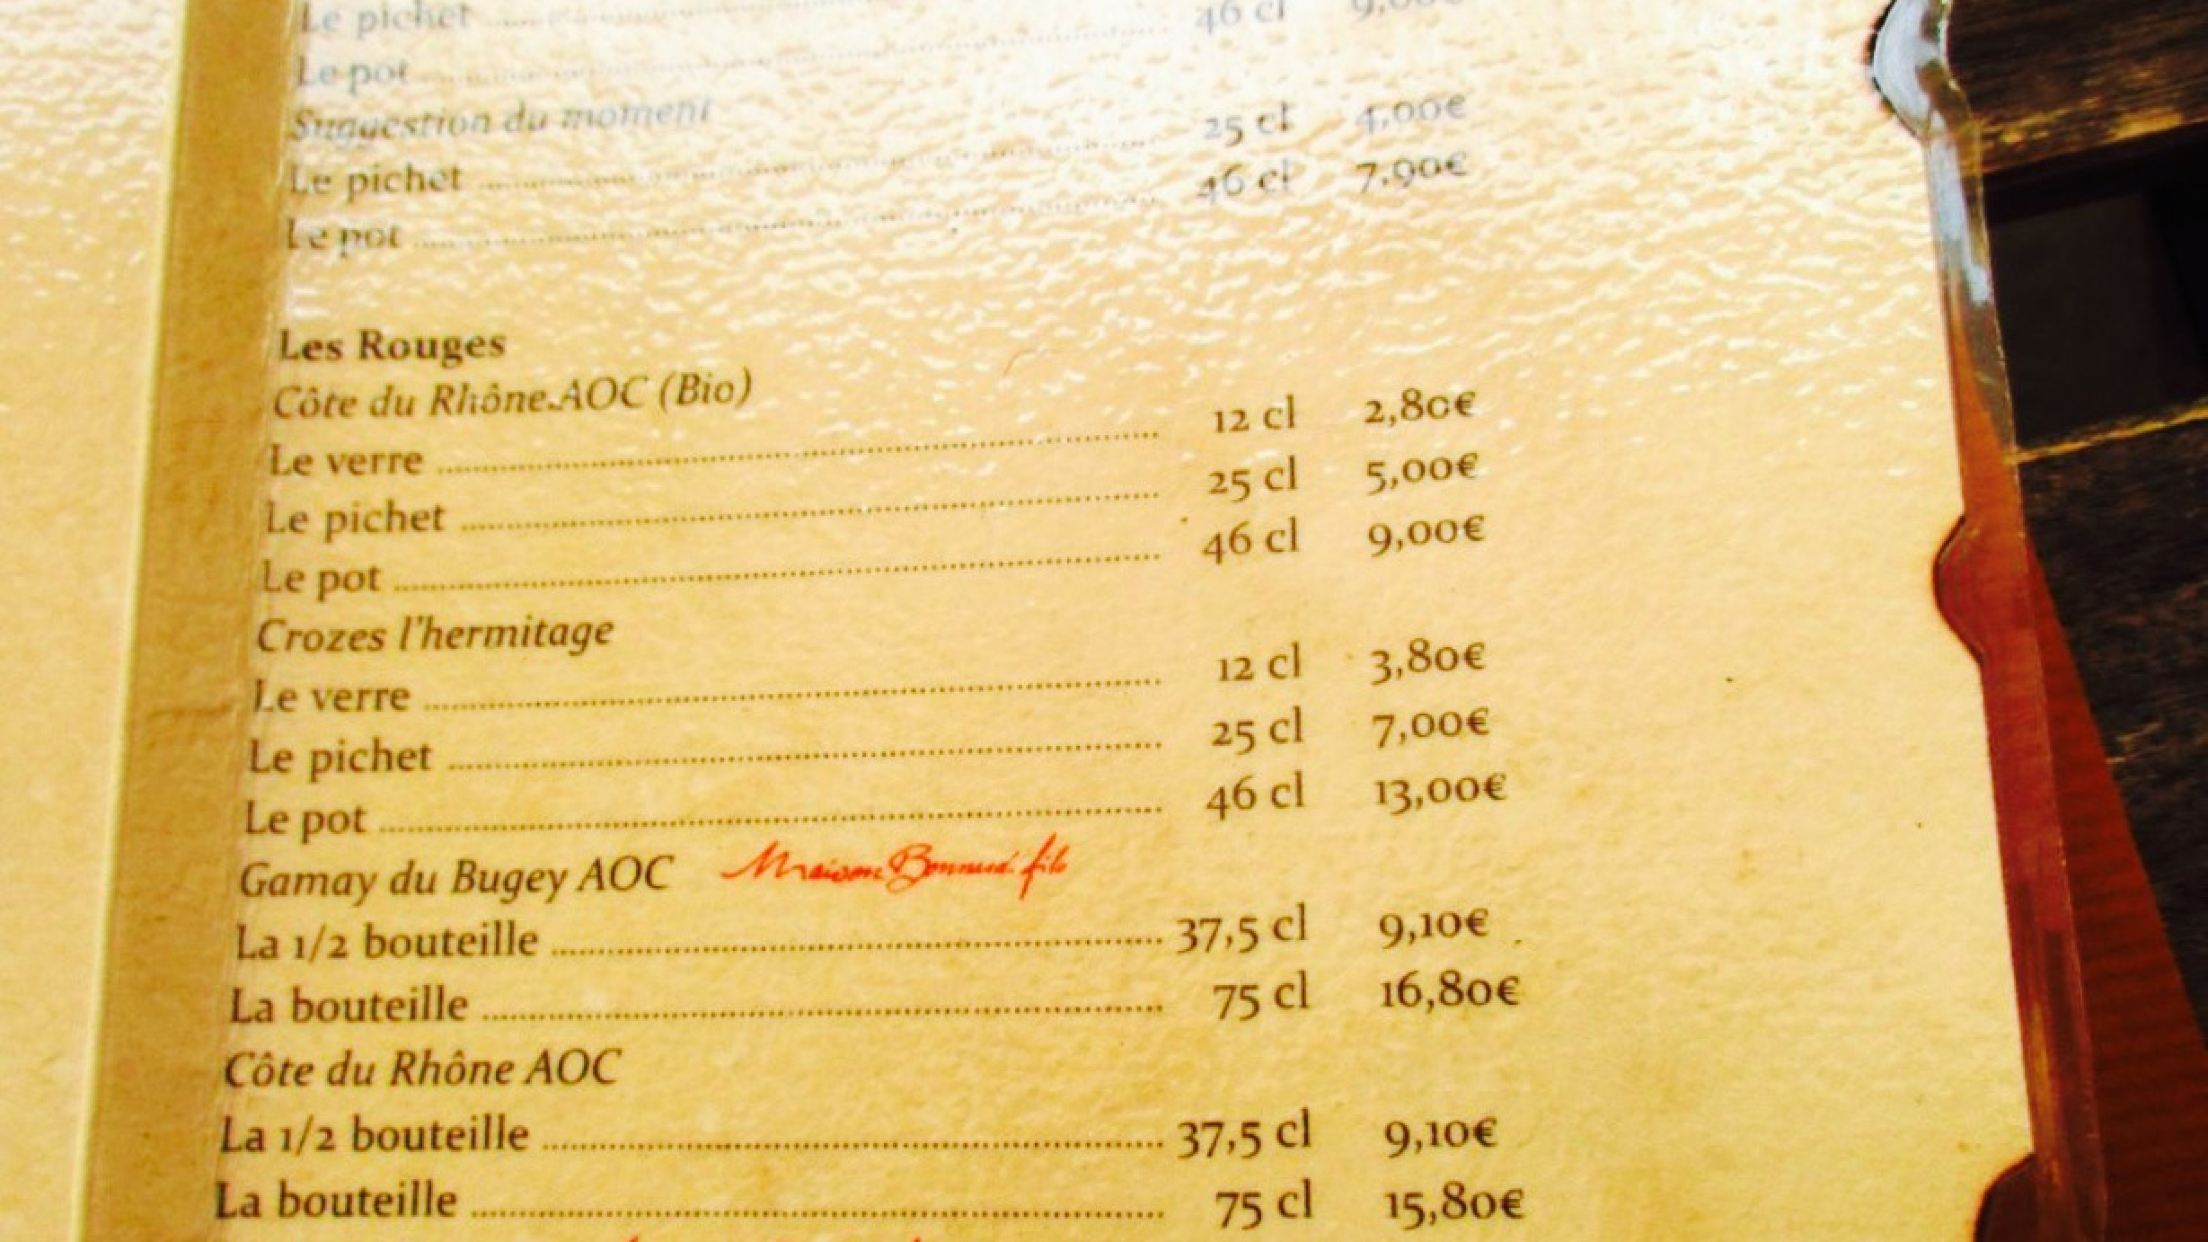 Le pichet ........ 46 cl 9,00€
Le pot ........
Suggestion du moment
Le pichet ........ 25 cl 4,00€
Le pot ........ 46 cl 7,90€
Les Rouges
Côte du Rhône AOC (Bio)
Le verre ........ 12 cl 2,80€
Le pichet ........ 25 cl 5,00€
Le pot ........ 46 cl 9,00€
Crozes l'hermitage
Le verre ........ 12 cl 3,80€
Le pichet ........ 25 cl 7,00€
Le pot ........ 46 cl 13,00€
Gamay du Bugey AOC Maison Bonnard fils
La 1/2 bouteille ........ 37,5 cl 9,10€
La bouteille ........ 75 cl 16,80€
Côte du Rhône AOC
La 1/2 bouteille ........ 37,5 cl 9,10€
La bouteille ........ 75 cl 15,80€